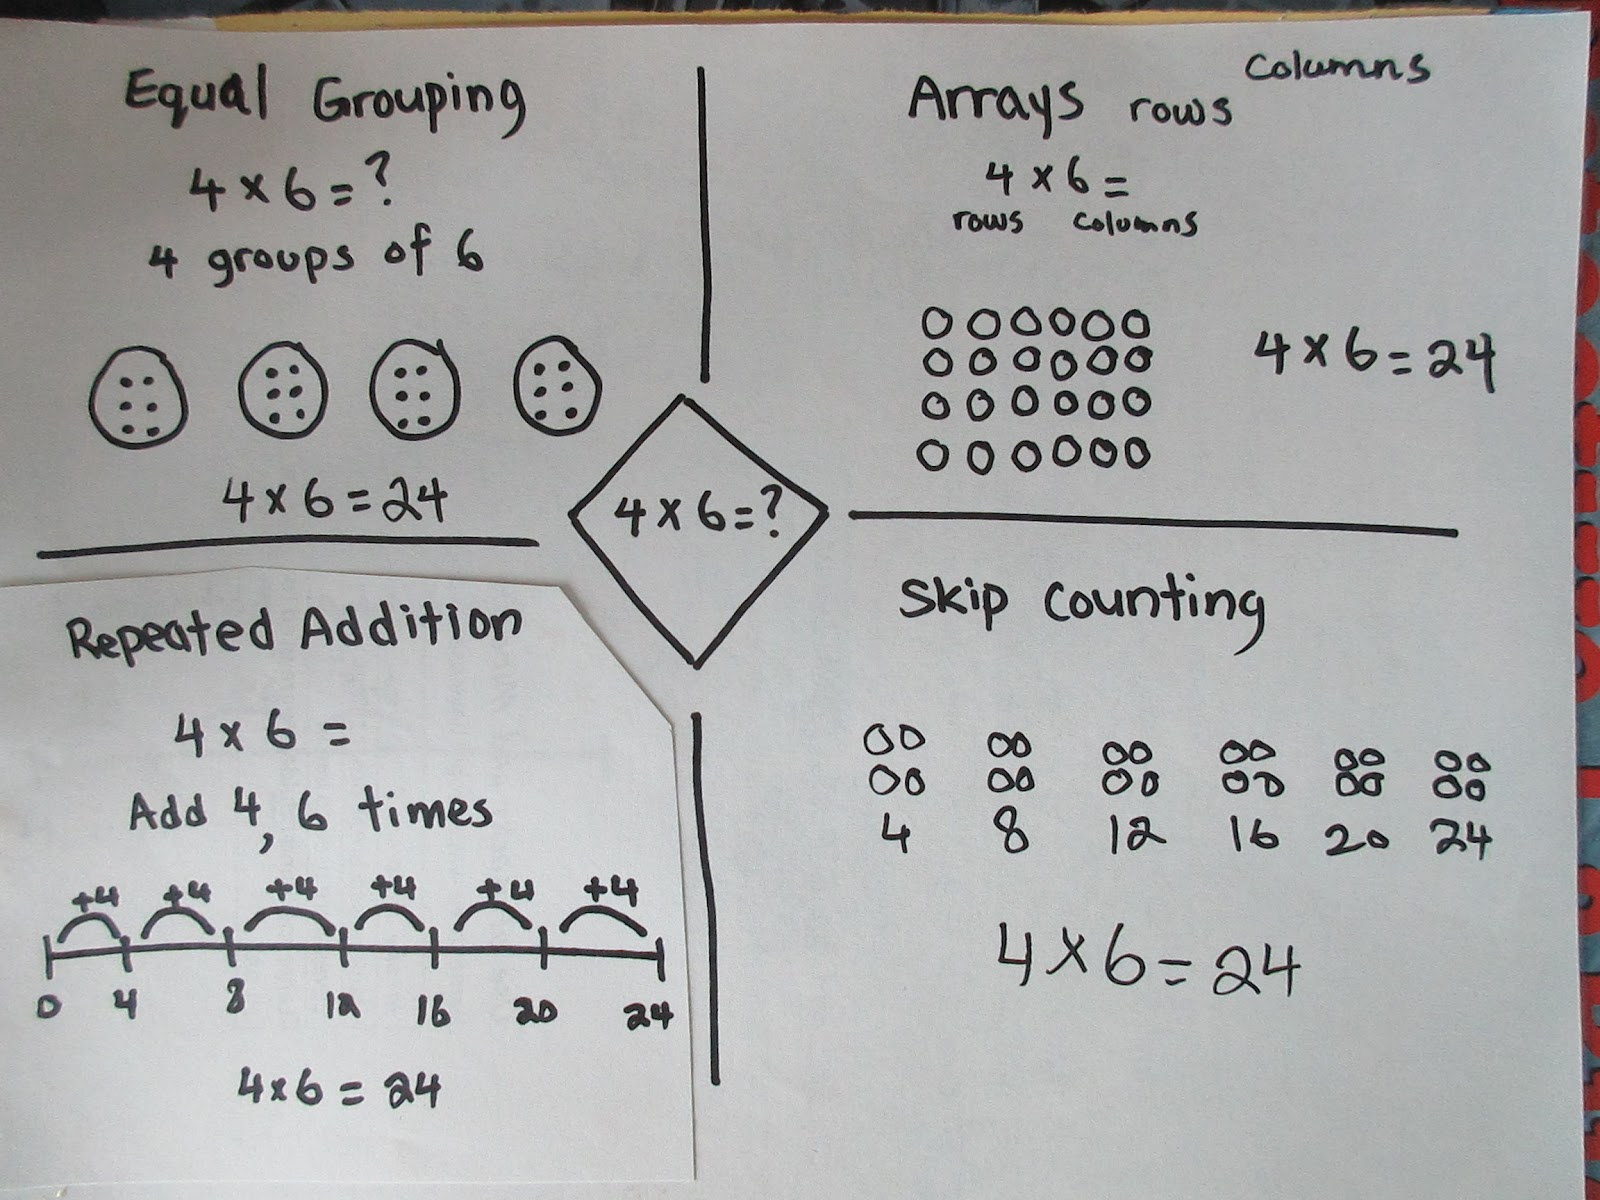 Equal Grouping
4 × 6 = ?
4 groups of 6
4 × 6 = 24
Arrays rows columns
4 × 6 =
rows columns
4 × 6 = 24
4 × 6 = ?
Repeated Addition
4 × 6 =
Add 4, 6 times
+4 +4 +4 +4 +4 +4
0 4 8 12 16 20 24
4 × 6 = 24
Skip Counting
4 8 12 16 20 24
4 × 6 = 24